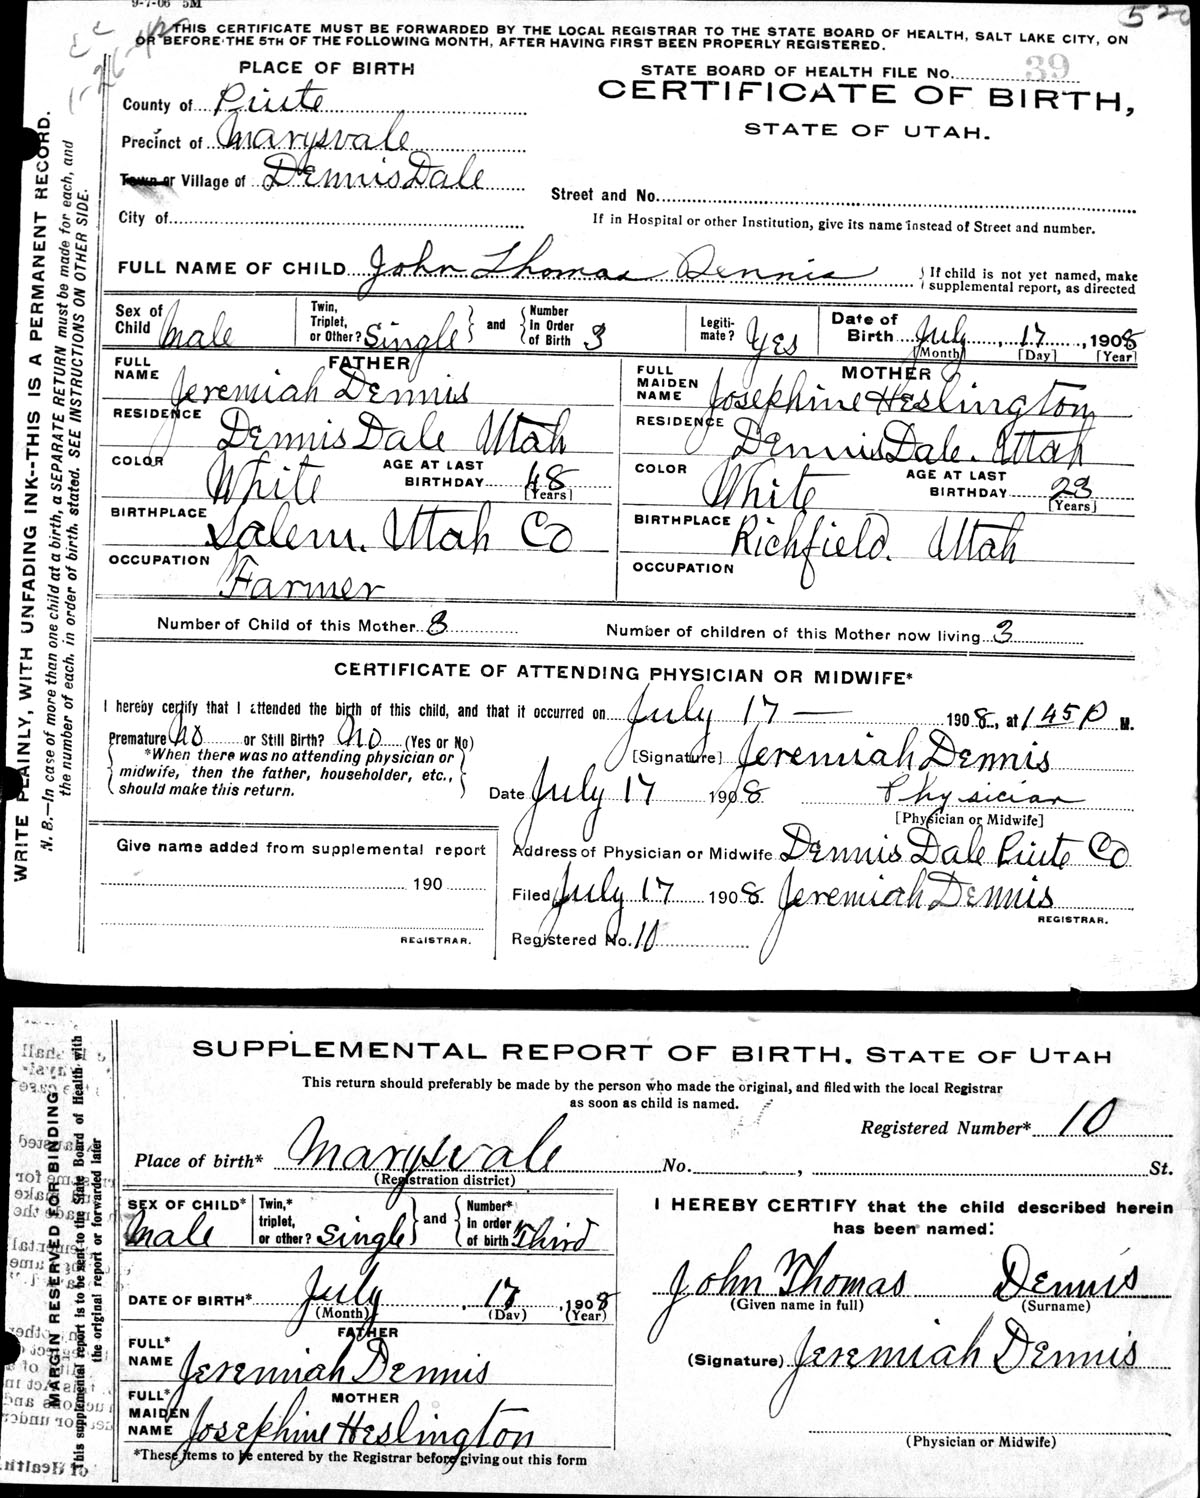 9-7-06 5M
520
THIS CERTIFICATE MUST BE FORWARDED BY THE LOCAL REGISTRAR TO THE STATE BOARD OF HEALTH, SALT LAKE CITY, ON
OR BEFORE THE 5TH OF THE FOLLOWING MONTH, AFTER HAVING FIRST BEEN PROPERLY REGISTERED.
PLACE OF BIRTH
STATE BOARD OF HEALTH FILE No. 39
CERTIFICATE OF BIRTH,
STATE OF UTAH.
County of Piute
Precinct of Marysvale
Town or Village of Dennis Dale
Street and No.
City of
If in Hospital or other Institution, give its name instead of Street and number.
FULL NAME OF CHILD John Thomas Dennis
If child is not yet named, make
supplemental report, as directed
Sex of Child Male
Twin, Triplet, or Other? Single and Number in Order of Birth 3
Legiti-mate? Yes
Date of Birth July 17, 1908
(Month) [Day] [Year]
FATHER
FULL NAME Jeremiah Dennis
RESIDENCE Dennis Dale Utah
COLOR White AGE AT LAST BIRTHDAY 48 [Years]
BIRTHPLACE Salem. Utah Co
OCCUPATION Farmer
MOTHER
FULL MAIDEN NAME Josephine Heslington
RESIDENCE Dennis Dale. Utah
COLOR White AGE AT LAST BIRTHDAY 23 [Years]
BIRTHPLACE Richfield. Utah
OCCUPATION
Number of Child of this Mother 3
Number of children of this Mother now living 3
CERTIFICATE OF ATTENDING PHYSICIAN OR MIDWIFE*
I hereby certify that I attended the birth of this child, and that it occurred on July 17 — 1908, at 1 45 P M.
Premature No or Still Birth? No (Yes or No)
*When there was no attending physician or
midwife, then the father, householder, etc.,
should make this return.
[Signature] Jeremiah Dennis
Date July 17 1908 Physician
[Physician or Midwife]
Give name added from supplemental report
190
REGISTRAR.
Address of Physician or Midwife Dennis Dale Piute Co
Filed July 17 1908. Jeremiah Dennis
REGISTRAR.
Registered No. 10
WRITE PLAINLY, WITH UNFADING INK--THIS IS A PERMANENT RECORD.
N. B.—In case of more than one child at a birth, a SEPARATE RETURN must be made for each, and
the number of each, in order of birth, stated. SEE INSTRUCTIONS ON OTHER SIDE.
SUPPLEMENTAL REPORT OF BIRTH, STATE OF UTAH
This return should preferably be made by the person who made the original, and filed with the local Registrar
as soon as child is named.
Registered Number* 10
Place of birth* Marysvale No. , St.
(Registration district)
SEX OF CHILD* Male
Twin,* triplet, or other? Single and Number* in order of birth Third
DATE OF BIRTH* July, 17, 1908
(Month) (Day) (Year)
FATHER
FULL* NAME Jeremiah Dennis
MOTHER
FULL* MAIDEN NAME Josephine Heslington
*These items to be entered by the Registrar before giving out this form
I HEREBY CERTIFY that the child described herein
has been named:
John Thomas Dennis
(Given name in full) (Surname)
(Signature) Jeremiah Dennis
(Physician or Midwife)
MARGIN RESERVED FOR BINDING
This supplemental report is to be sent to the State Board of Health with
the original report or forwarded later